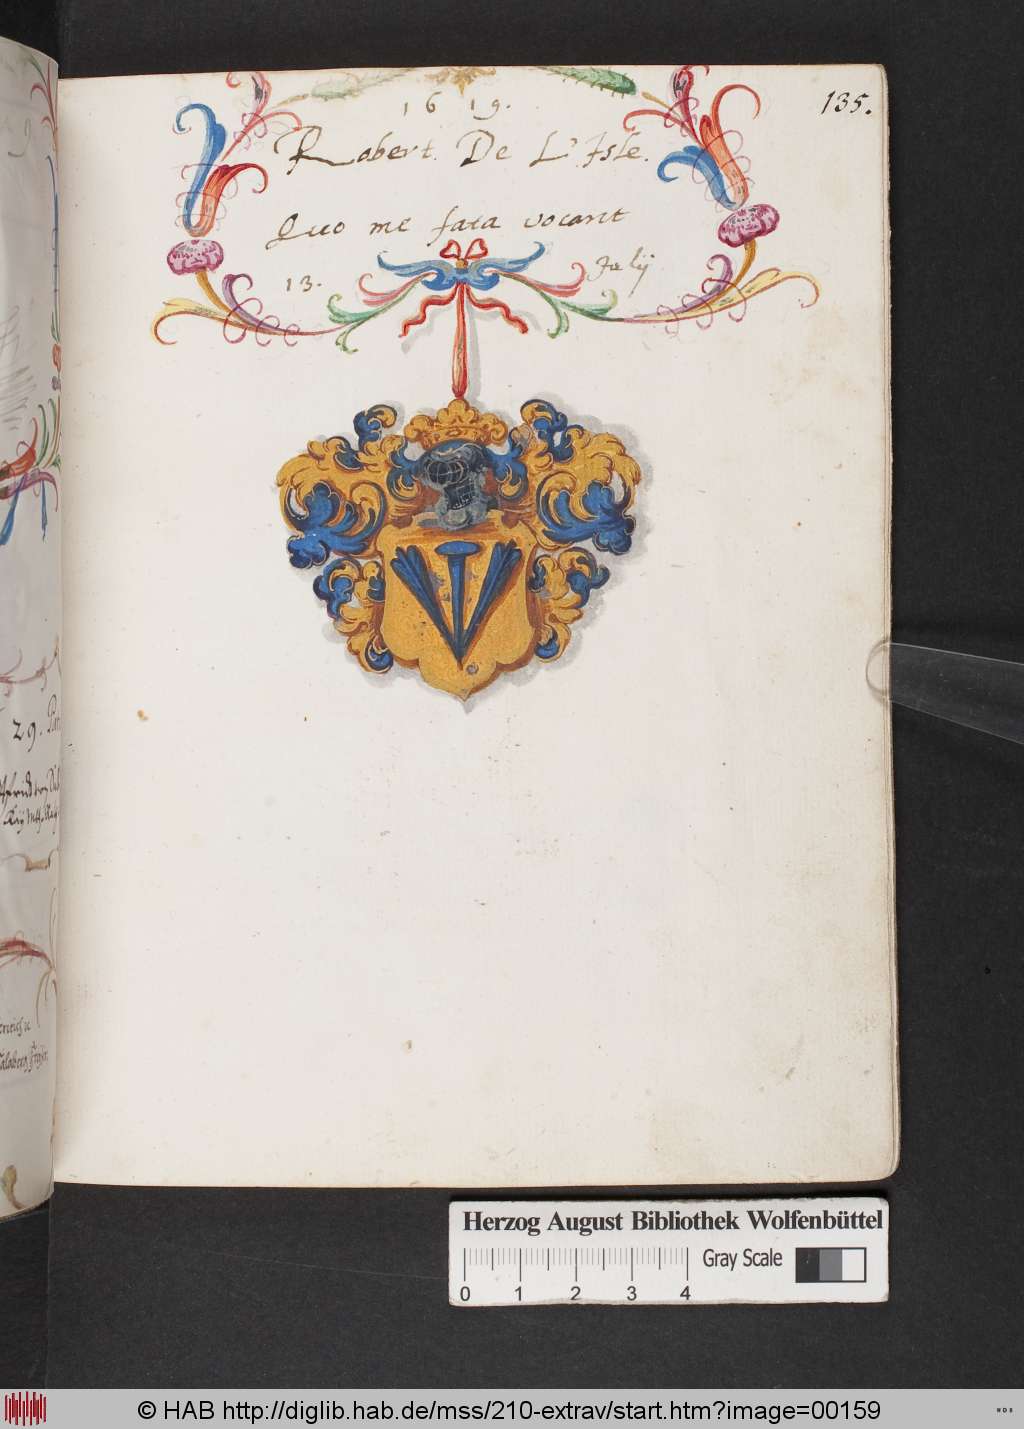 135.
1619.
Robert De L'Isle.
Quo me fata vocant
13. Julij
29.
Herzog August Bibliothek Wolfenbüttel
Gray Scale
0 1 2 3 4
© HAB http://diglib.hab.de/mss/210-extrav/start.htm?image=00159